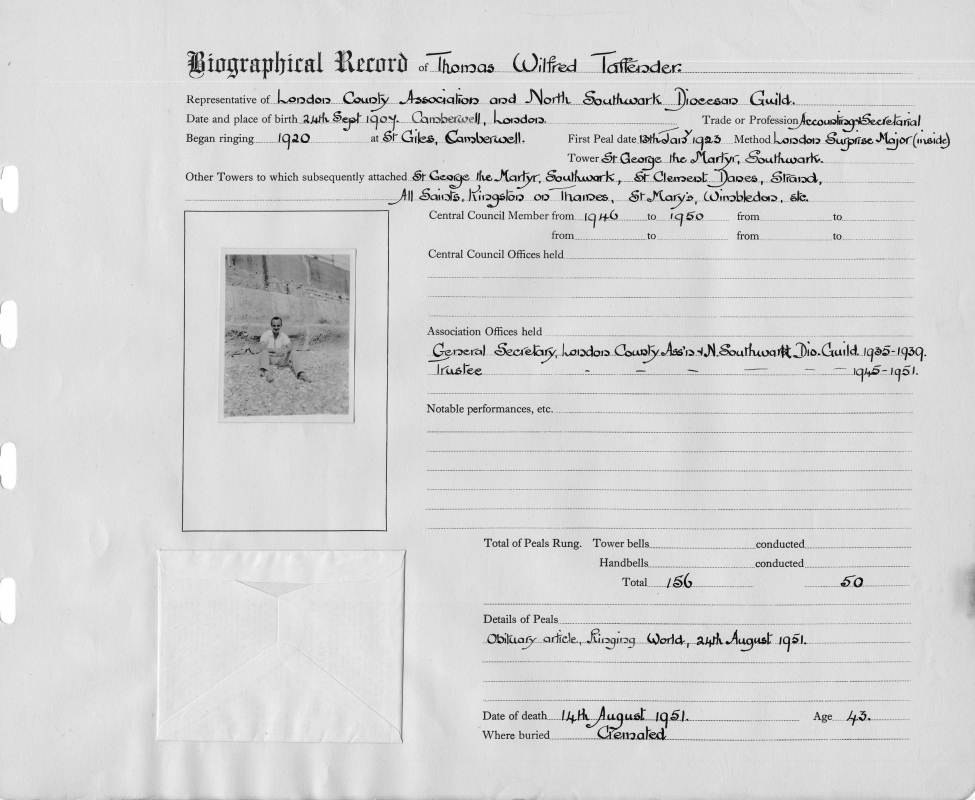 Biographical Record of Thomas Wilfred Taffender.
Representative of London County Association and North Southwark Diocesan Guild.
Date and place of birth 24th Sept 1907. Camberwell, London. Trade or Profession Accounting & Secretarial
Began ringing 1920 at St Giles, Camberwell. First Peal date 13th Jan'y 1923 Method London Surprise Major (inside)
Tower St George the Martyr, Southwark.
Other Towers to which subsequently attached St George the Martyr, Southwark, St Clement Danes, Strand,
All Saints, Kingston on Thames, St Mary's, Wimbledon, etc.
Central Council Member from 1946 to 1950 from to
from to from to
Central Council Offices held
Association Offices held
General Secretary, London County Ass'n & N. Southwark Dio. Guild. 1935-1939.
Trustee - - - - - - 1945-1951.
Notable performances, etc.
Total of Peals Rung. Tower bells conducted
Handbells conducted
Total 156 50
Details of Peals
Obituary article, Ringing World, 24th August 1951.
Date of death 14th August 1951. Age 43.
Where buried Cremated